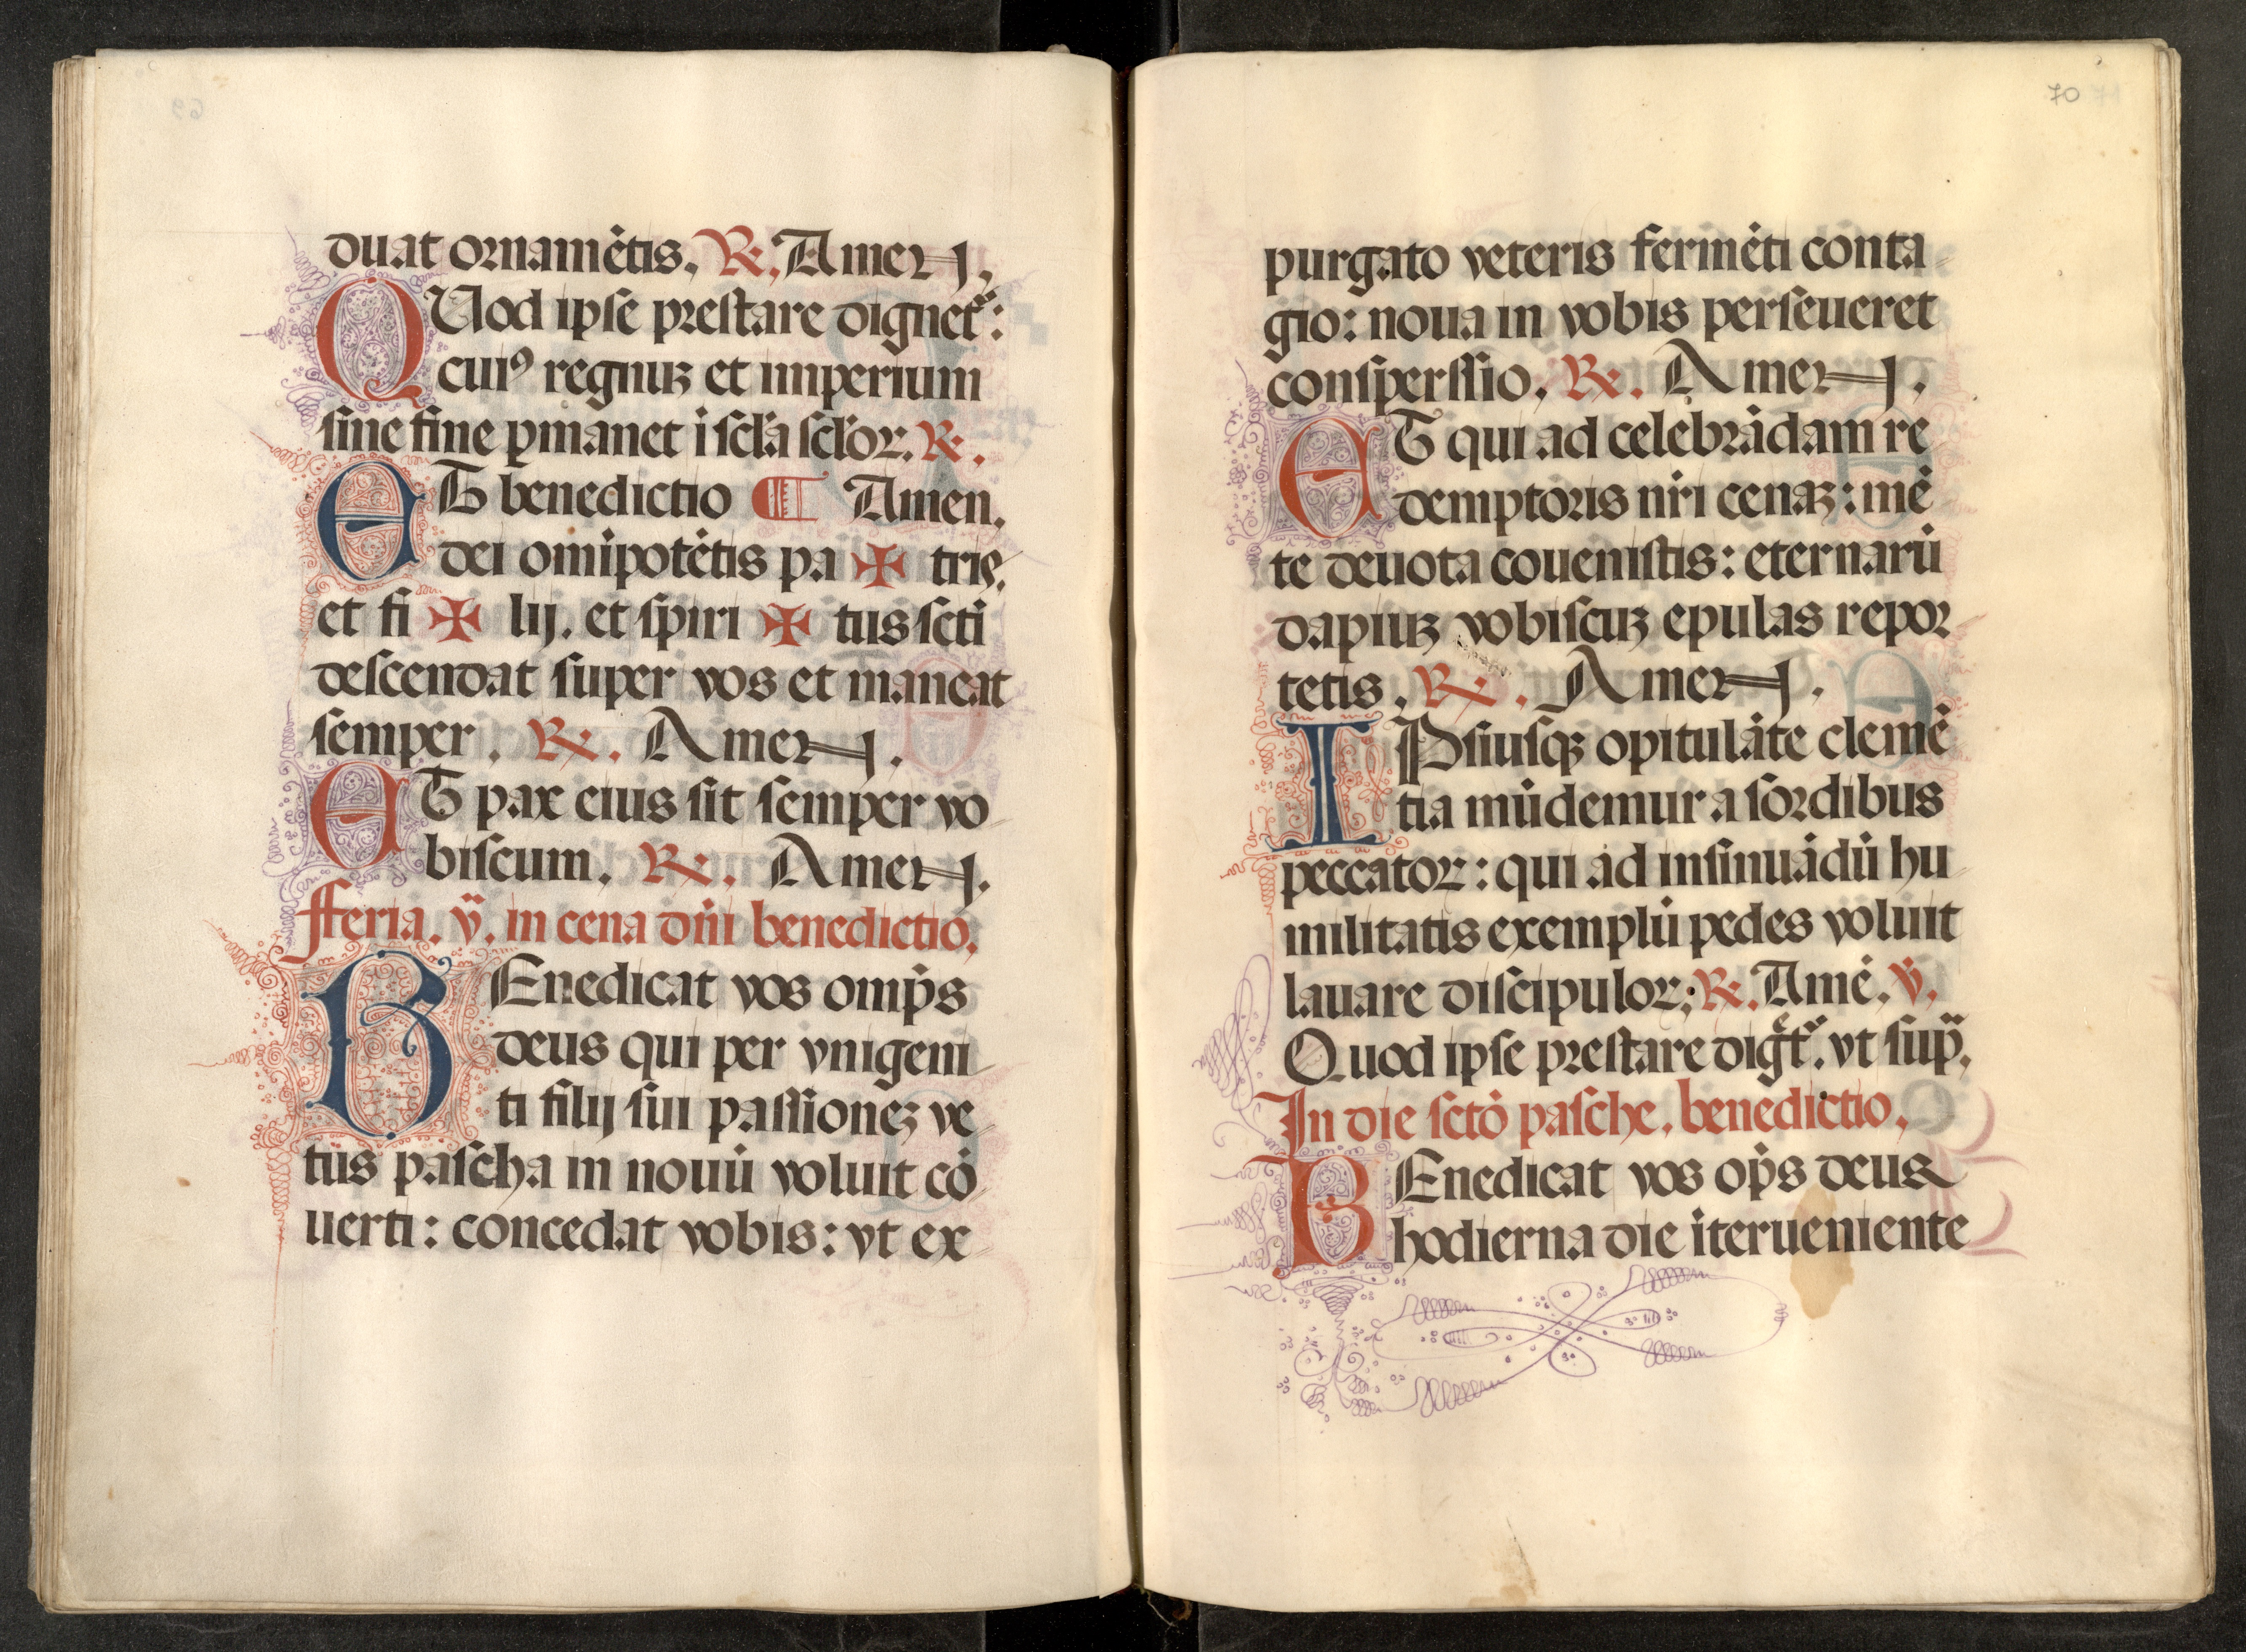 duat ornamētis. ℟. Amen.
QUod ipse prestare dignet᷑:
cuiꝯ regnuꝫ et imperium
sine fine ꝑmanet ī scl̄a scl̄oꝝ. ℟.
ET benedictio ¶ Amen.
dei omīpotētis pa ✠ tris.
et fi ✠ lij. et spiri ✠ tus scti
descendat super vos et maneat
semper. ℟. Amen.
ET pax eius sit semper vo
biscum. ℟. Amen.
fferia. v̈. in cena dn̄i benedictio.
BEnedicat vos omp̄s
deus qui per vnigeni
ti filij sui passioneꝫ ve
tus pascha in nouū voluit cō
uerti: concedat vobis: vt ex
70
purgato veteris fermēti conta
gio: noua in vobis perseueret
consperssio. ℟. Amen.
ET qui ad celebrādam re
demptoris nr̄i cenaꝫ: mē
te deuota couenistis: eternarū
dapiuꝫ vobiscuꝫ epulas repor
tetis. ℟. Amen.
IPsiusqꝫ opitulāte clemē
tia mūdemur a sordibus
peccatoꝝ: qui ad insinuādū hu
militatis exemplū pedes voluit
lauare discipuloꝝ; ℟. Amē. ℣.
Quod ipse prestare digēt᷑. vt sup̄.
In die sctō pasche. benedictio.
BEnedicat vos op̄s deus
hodierna die īterueniente